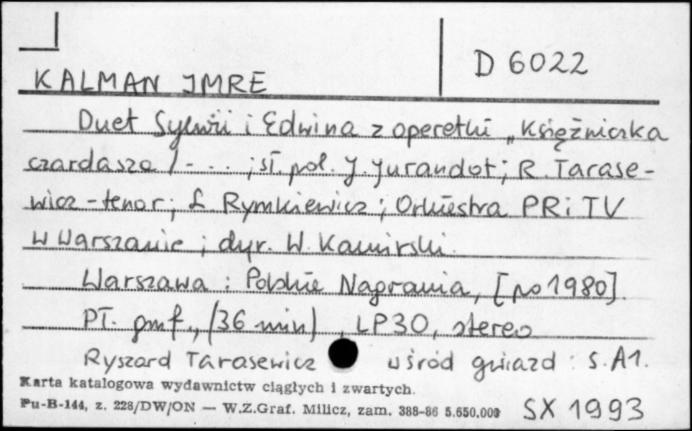 D 6022
KALMAN IMRE
Duet Sylwii i Edwina z operetki „Księżniczka
czardasza / - . . . ; sł. pol. J. Jurandot ; R. Tarase-
wicz - tenor ; L. Rymkiewicz ; Orkiestra PR i TV
w Warszawie ; dyr. W. Kamirski.
Warszawa : Polskie Nagrania, [po 1980].
Pł. gmf., (36 min), LP30, stereo
Ryszard Tarasewicz wśród gwiazd : s. A1.
Karta katalogowa wydawnictw ciągłych i zwartych.
Pu-B-144, z. 228/DW/ON — W.Z.Graf. Milicz, zam. 388-86 5.650.000
SX 1993